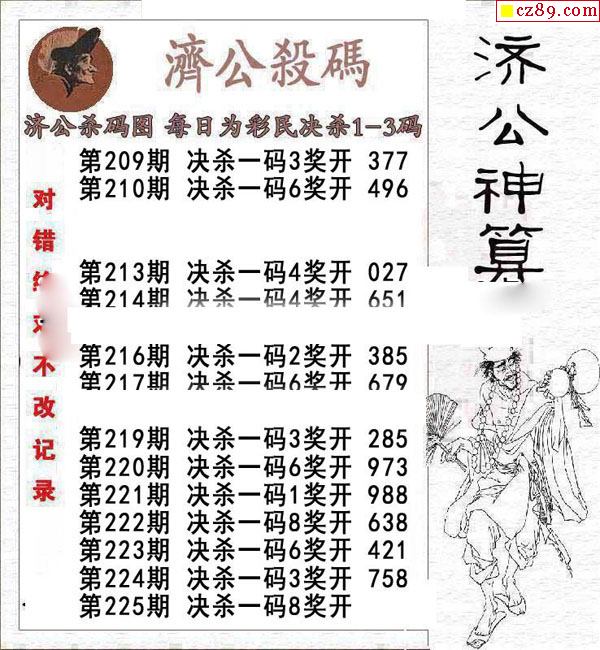 cz89.com
濟公殺碼
济公神算
济公杀码图 每日为彩民决杀1-3码
第209期 决杀一码3奖开 377
第210期 决杀一码6奖开 496
第213期 决杀一码4奖开 027
第214期 决杀一码4奖开 651
第216期 决杀一码2奖开 385
第217期 决杀一码6奖开 679
第219期 决杀一码3奖开 285
第220期 决杀一码6奖开 973
第221期 决杀一码1奖开 988
第222期 决杀一码8奖开 638
第223期 决杀一码6奖开 421
第224期 决杀一码3奖开 758
第225期 决杀一码8奖开
对错不改记录